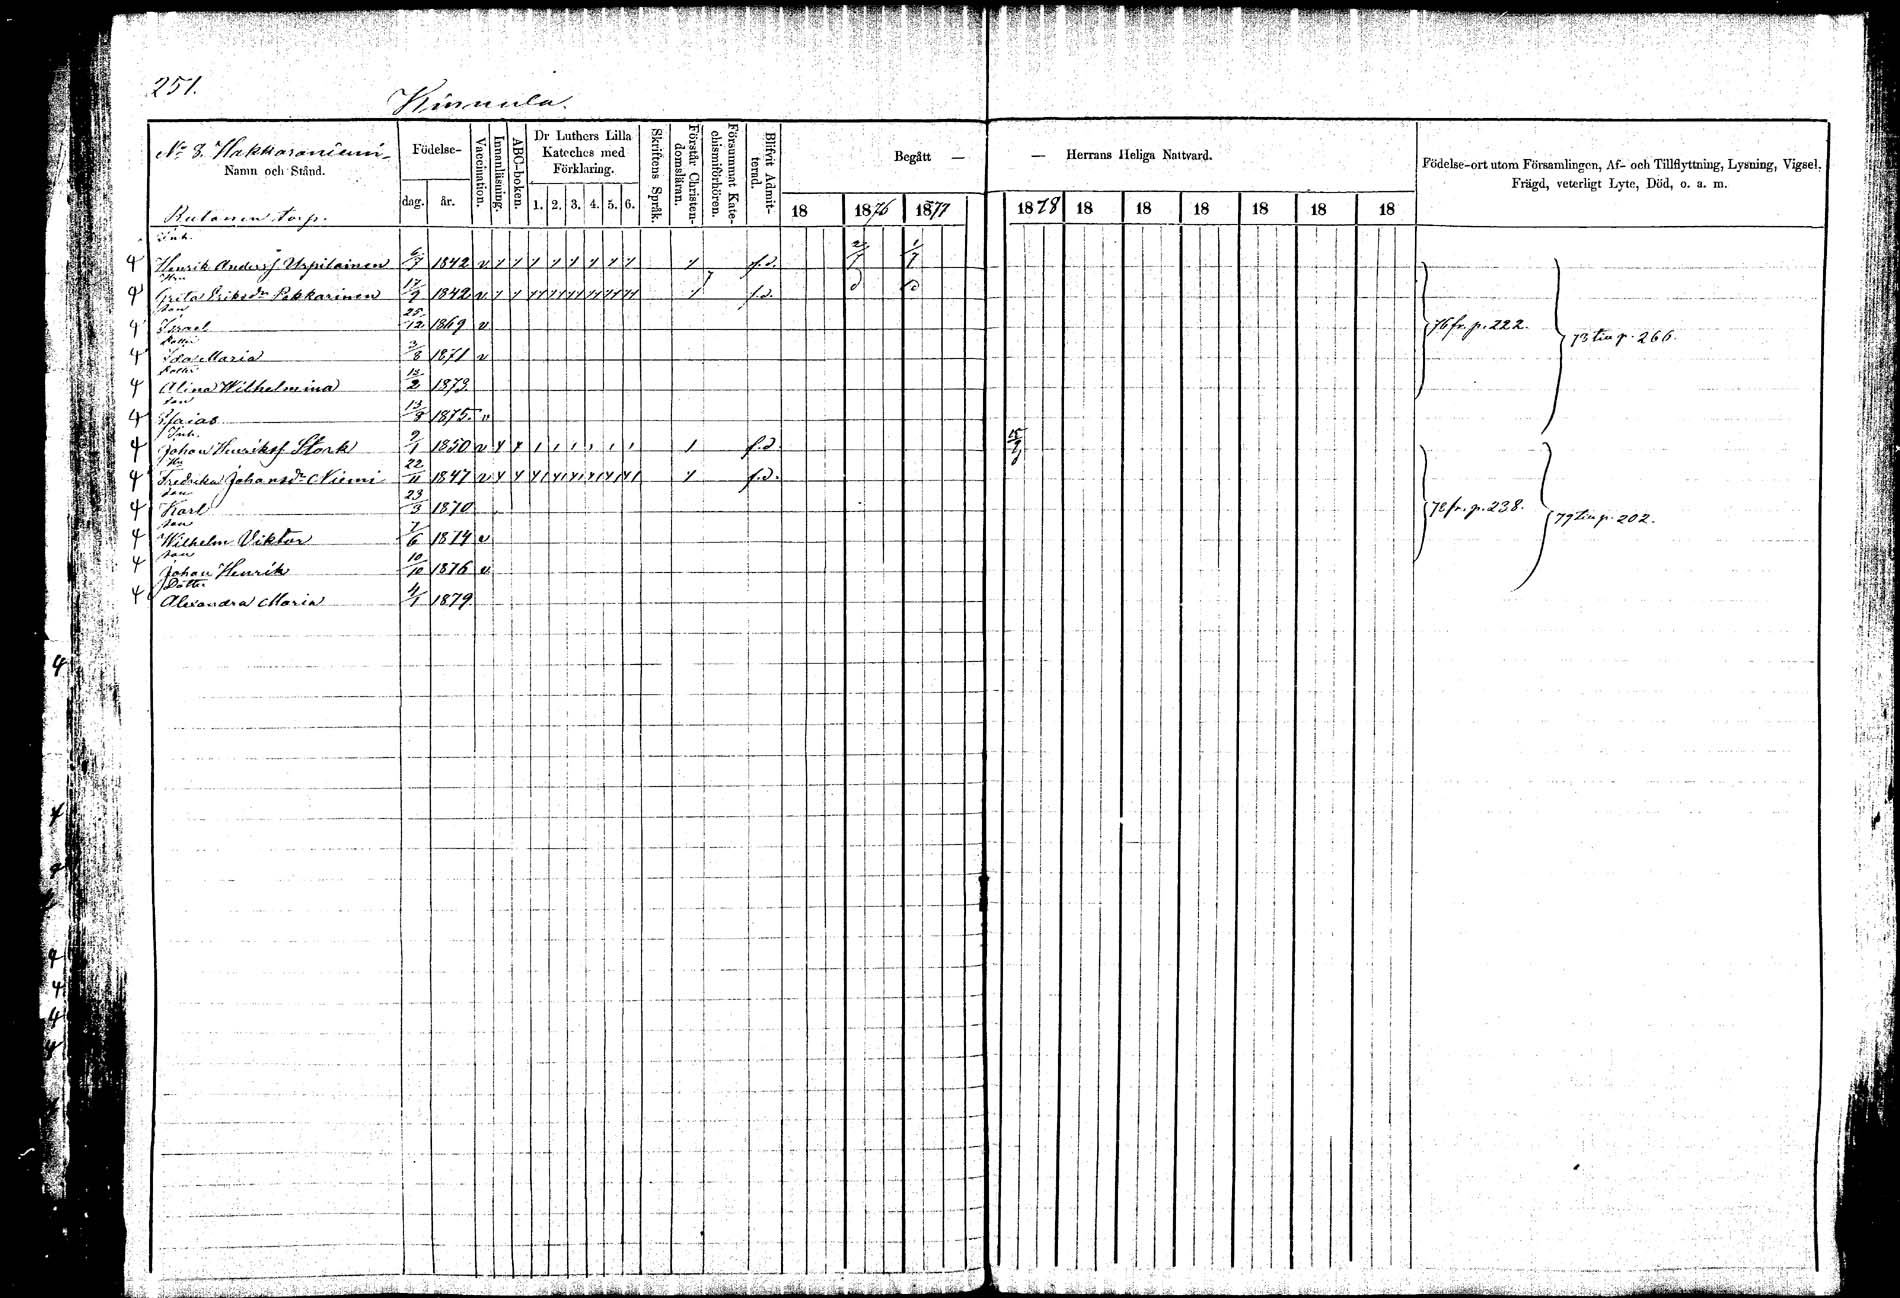 251.
Kinnula.
No 8. Hakkaraniemi
Namn och Stånd.
Födelse-
dag.
år.
Vaccination.
Innanläsning.
ABC-boken.
Dr Luthers Lilla
Kateches med
Förklaring.
1. 2. 3. 4. 5. 6.
Skriftens Språk.
Förstår Christen-
domsläran.
Försummat Kate-
chismiförhören.
Blifvit Admit-
terad.
Begått —
— Herrans Heliga Nattvard.
18 1876 1877 1878 18 18 18 18 18 18
Födelse-ort utom Församlingen, Af- och Tillflyttning, Lysning, Vigsel,
Frägd, veterligt Lyte, Död, o. a. m.
Rutanen torp.
Inh.
4 Henrik Andersf Urpilainen 6/7 1842 v f.d. 2/7 1/7
Hu
4 Greta Eriksdr Pekkarinen 17/9 1842 v f.d.
son
4 Israel 25/12 1869 v
Dotter
4 Ida Maria 3/8 1871 v
Dotter
4 Alina Wilhelmina 13/2 1873
son
4 Esaias 13/8 1875 v
76 fr. p. 222.
78 till p. 266.
Inh.
4 Johan Henriksf Stork 9/1 1850 v f.d.
Hu
4 Fredrika Johansdr Niemi 22/11 1847 v f.d.
son
4 Karl 23/3 1870
son
4 Wilhelm Viktor 7/6 1874 v
son
4 Johan Henrik 10/10 1876 v
Dotter
4 Alexandra Maria 4/1 1879
78 fr. p. 238.
79 till p. 202.